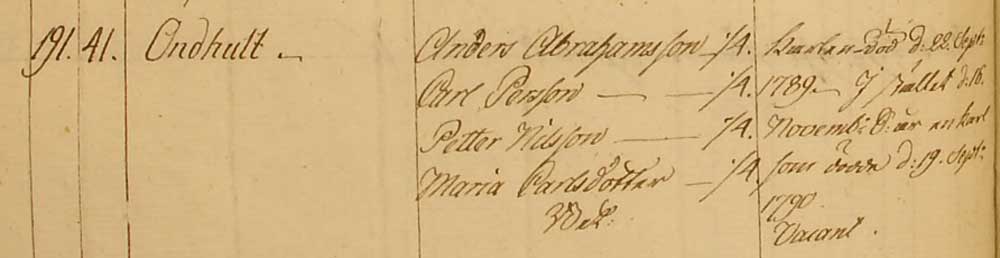 191. 41. Ondhult — Anders Abrahamsson — 1/4. Karlen död d: 22. Sept:
Carl Persson — — 1/4. 1789. — I stället d: 16.
Petter Nilsson — 1/4. Novemb: d: år en karl
Maria Carlsdotter — 1/4 som dödde d: 19. Sept:
1790.
Vacant.